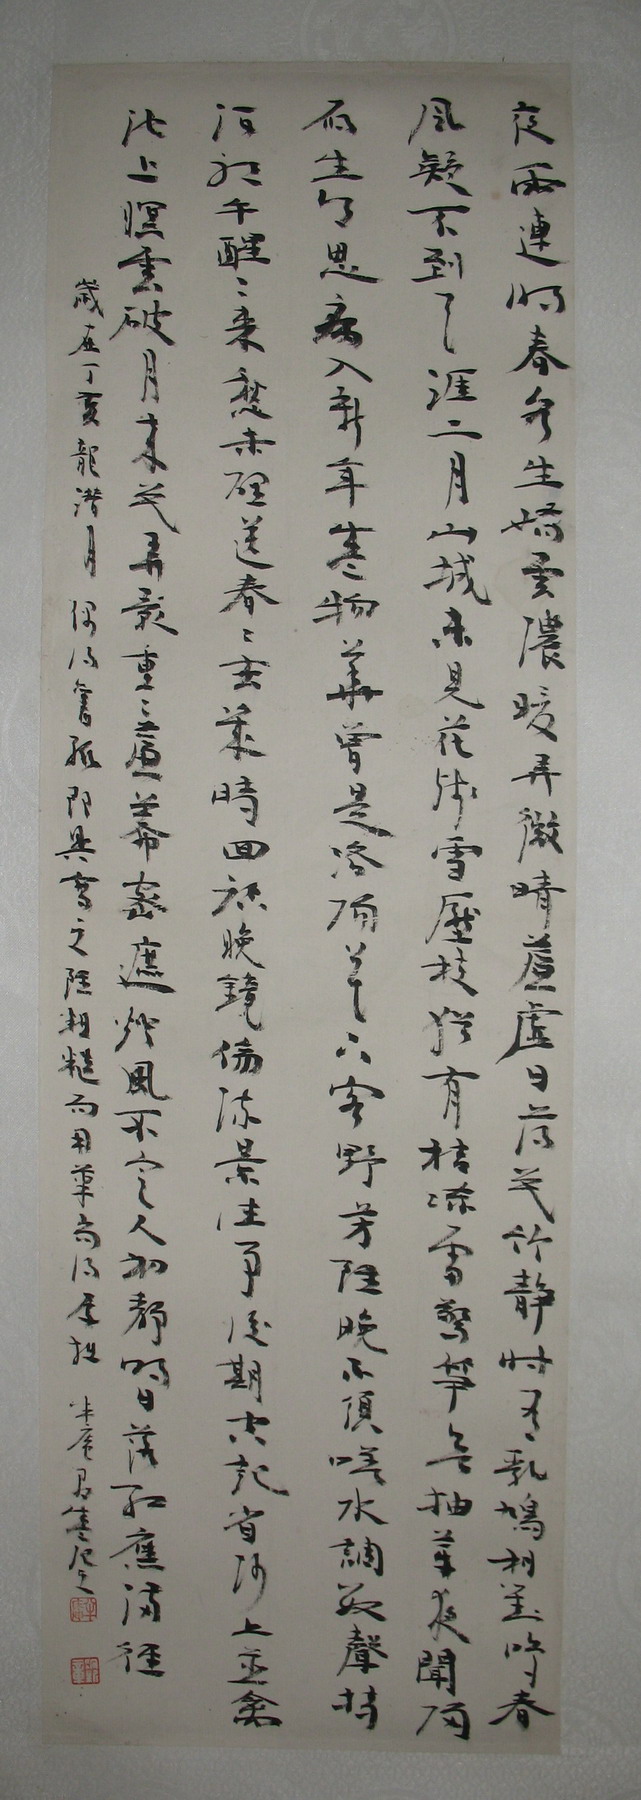 夜雨連明春水生嬌雲濃暖弄微晴簾虛日薄花竹靜時有乳鳩相對鳴春
風疑不到天涯二月山城未見花殘雪壓枝猶有桔凍雷驚筍欲抽芽夜聞歸
雁生鄉思病入新年感物華曾是洛陽花下客野芳雖晚不須嗟水調數聲持
酒聽午醒〻來愁未醒送春〻去幾時回臨晚鏡傷流景往事後期空記省沙上並禽
池上暝雲破月來花弄影重〻簾幕密遮燈風不定人初靜明日落紅應滿徑
歲在丁亥龍潛月 偶得舊紙即興書之雖粗糙而用筆尚得厚拙 半庵